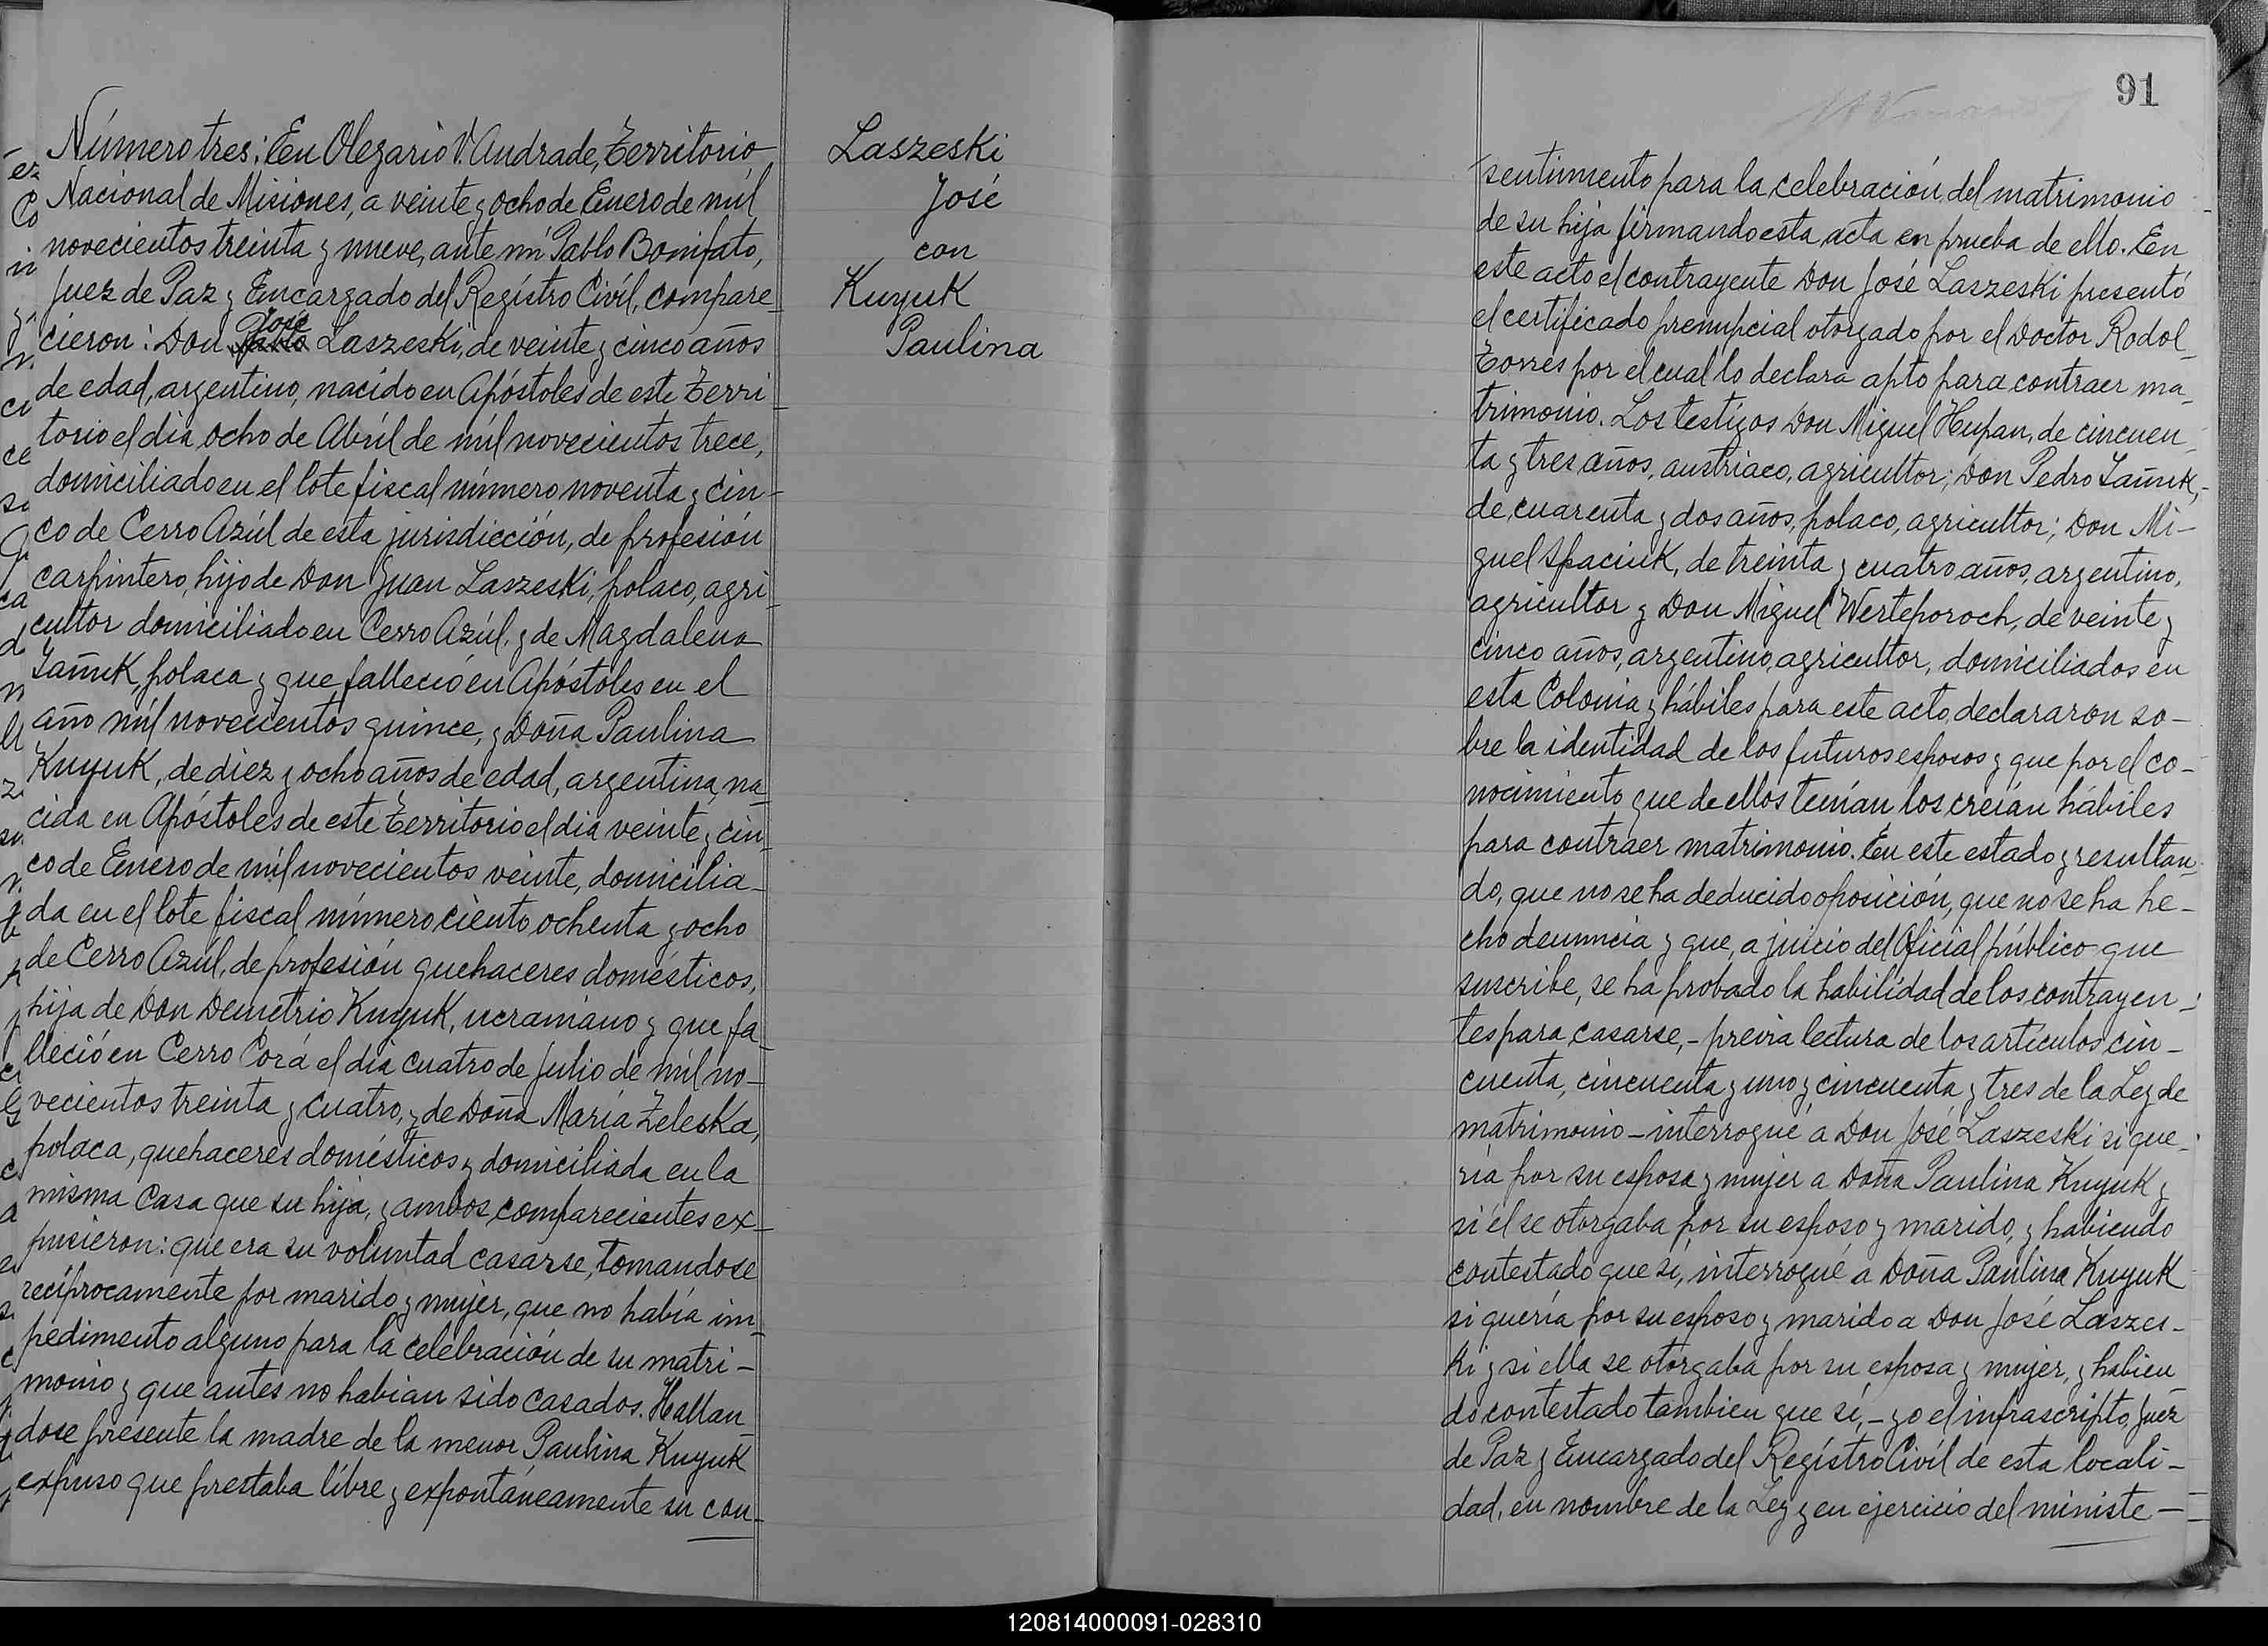 Número tres: En Olegario V. Andrade, Territorio
Nacional de Misiones, a veinte y ocho de Enero de mil
novecientos treinta y nueve, ante mí Pablo Bonifato,
Juez de Paz y Encargado del Regístro Civíl, compare_
cieron: Don José Laszeski, de veinte y cinco años
de edad, argentino, nacido en Apóstoles de este Terri_
torio el día ocho de Abríl de mil novecientos trece,
domiciliado en el lote fiscal número noventa y cin-
co de Cerro Azúl de esta jurisdicción, de profesión
carpintero, hijo de Don Juan Laszeski, polaco, agri_
cultor domiciliado en Cerro Azúl, y de Magdalena
polaca y que falleció en Apóstoles en el
año mil novecientos quince, y Doña Paulina
Kuyuk, de diez y ocho años de edad, argentina, na_
cida en Apóstoles de este Territorio el día veinte y cin_
co de Enero de mil novecientos veinte, domicilia_
da en el lote fiscal número ciento ochenta y ocho
de Cerro Azúl, de profesión quehaceres domésticos,
hija de Don Demetrio Kuyuk, ucraniano y que fa_
lleció en Cerro Corá el día cuatro de Julio de mil no_
vecientos treinta y cuatro, y de Doña María Zeleska,
polaca, quehaceres domésticos y domiciliada en la
misma casa que su hija, y ambos comparecientes ex_
pusieron: que era su voluntad casarse, tomandose
recíprocamente por marido y mujer, que no había im_
pedimento alguno para la celebración de su matri_
monio y que antes no habian sido casados. Hallan_
dose presente la madre de la menor Paulina Kuyuk
expuso que prestaba líbre y expontáneamente su con_
Laszeski
José
con
Kuyuk
Paulina
91
sentimento para la celebración del matrimonio
de su hija firmando esta acta en prueba de ello. En
este acto el contrayente Don José Laszeski presentó
el certificado prenupcial otorgado por el Doctor Rodol_
Torres por el cual lo declara apto para contraer ma_
trimonio. Los testigos Don Miguel Hupan, de cincuen_
ta y tres años, austriaco, agricultor; Don Pedro
de cuarenta y dos años, polaco, agricultor; Don Mi-
guel Spaciuk, de treinta y cuatro años, argentino,
agricultor y Don Miguel Werteporoch, de veinte y
cinco años, argentino, agricultor, domiciliados en
esta Colonia y hábiles para este acto, declararon so-
bre la identidad de los futuros esposos y que por el co-
nocimiento que de ellos tenían los creían hábiles
para contraer matrimonio. En este estado y resultan_
do, que no se ha deducido oposición, que no se ha he-
cho denuncia y que, a juicio del Oficial público que
suscribe, se ha probado la habilidad de los contrayen_
tes para casarse,- previa lectura de los artículos cin-
cuenta, cincuenta y uno y cincuenta y tres de la Ley de
matrimonio - interrogué a Don José Laszeski si que_
ría por su esposa y mujer a Doña Paulina Kuyuk y
si él se otorgaba por su esposo y marido, y habiendo
contestado que sí, interrogué a Doña Paulina Kuyuk
si quería por su esposo y marido a Don José Laszes-
ki y si ella se otorgaba por su esposa y mujer, y habien_
do contestado tambien que sí,- yo el infrascripto, Juez
de Paz y Encargado del Regístro Civíl de esta locali-
dad, en nombre de la Ley y en ejercicio del ministe-
120814000091-028310